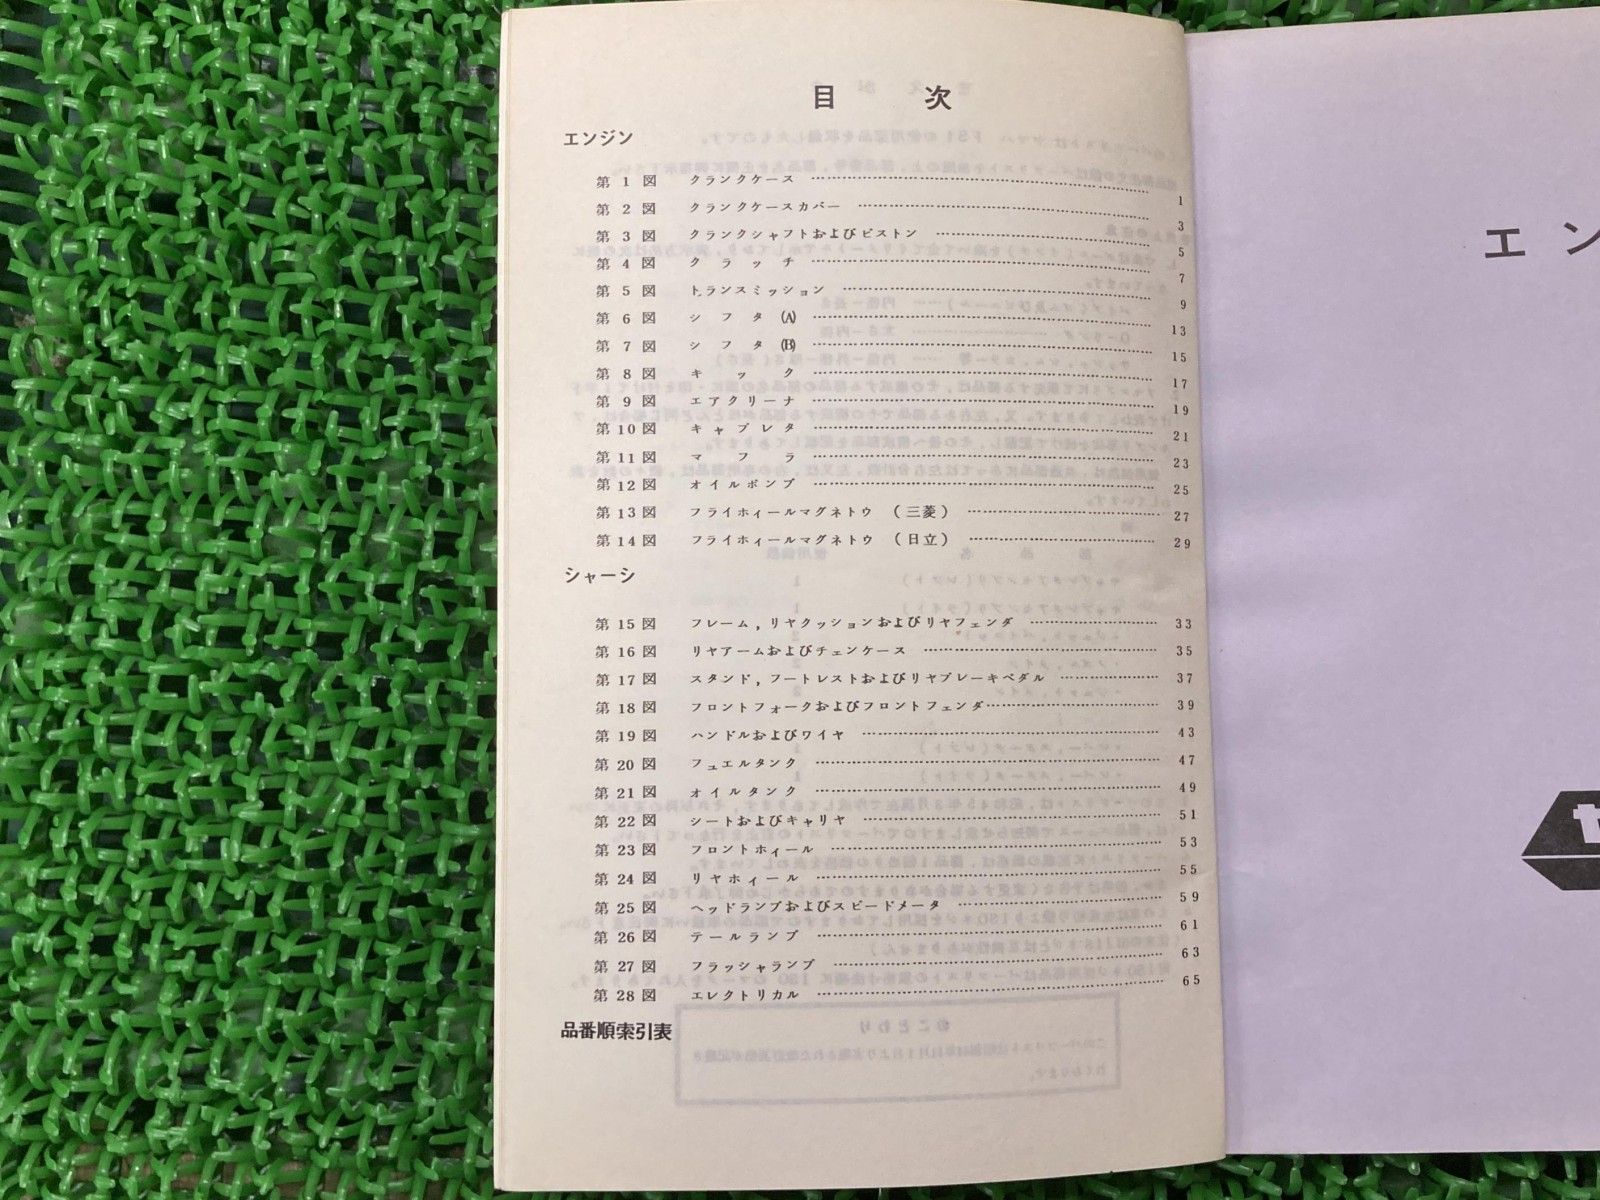 目次
エンジン
第1図 クランクケース 1
第2図 クランクケースカバー 3
第3図 クランクシャフトおよびピストン 5
第4図 クラッチ 7
第5図 トランスミッション 9
第6図 シフタ(A) 13
第7図 シフタ(B) 15
第8図 キック 17
第9図 エアクリーナ 19
第10図 キャブレタ 21
第11図 マフラ 23
第12図 オイルポンプ 25
第13図 フライホィールマグネトウ (三菱) 27
第14図 フライホィールマグネトウ (日立) 29
シャーシ
第15図 フレーム,リヤクッションおよびリヤフェンダ 33
第16図 リヤアームおよびチェンケース 35
第17図 スタンド,フートレストおよびリヤブレーキペダル 37
第18図 フロントフォークおよびフロントフェンダ 39
第19図 ハンドルおよびワイヤ 43
第20図 フュエルタンク 47
第21図 オイルタンク 49
第22図 シートおよびキャリヤ 51
第23図 フロントホィール 53
第24図 リヤホィール 55
第25図 ヘッドランプおよびスピードメータ 59
第26図 テールランプ 61
第27図 フラッシャランプ 63
第28図 エレクトリカル 65
品番順索引表
エン